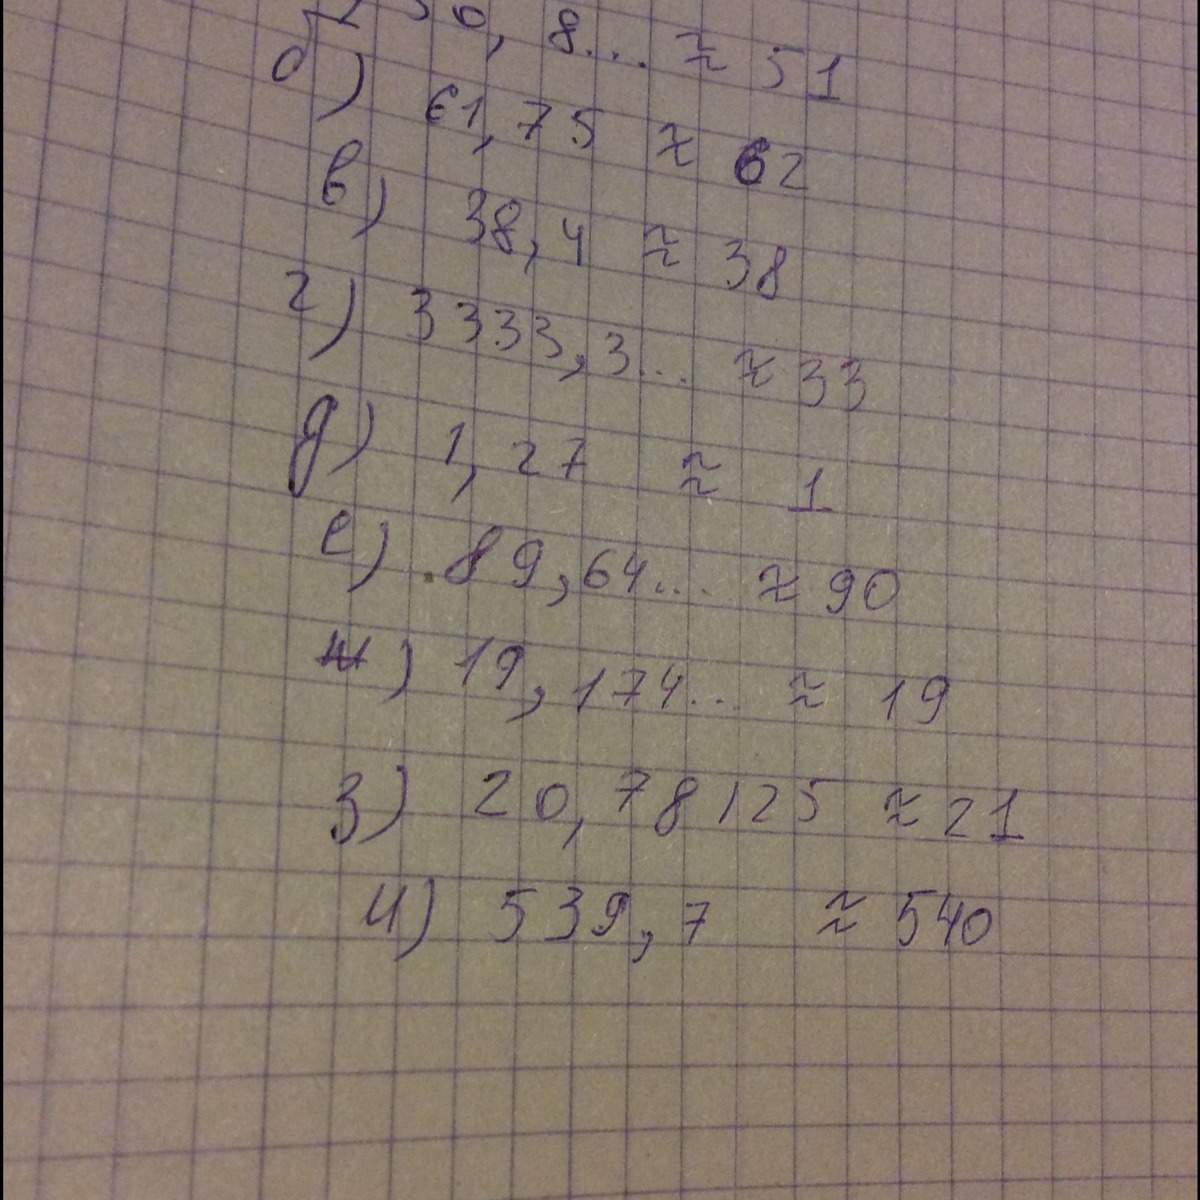 50, 8... ≈ 51
б) 61,75 ≈ 62
в) 38,4 ≈ 38
г) 3333,3... ≈ 33
д) 1,27 ≈ 1
е) 89,64... ≈ 90
ж) 19,174... ≈ 19
з) 20,78125 ≈ 21
и) 539,7 ≈ 540